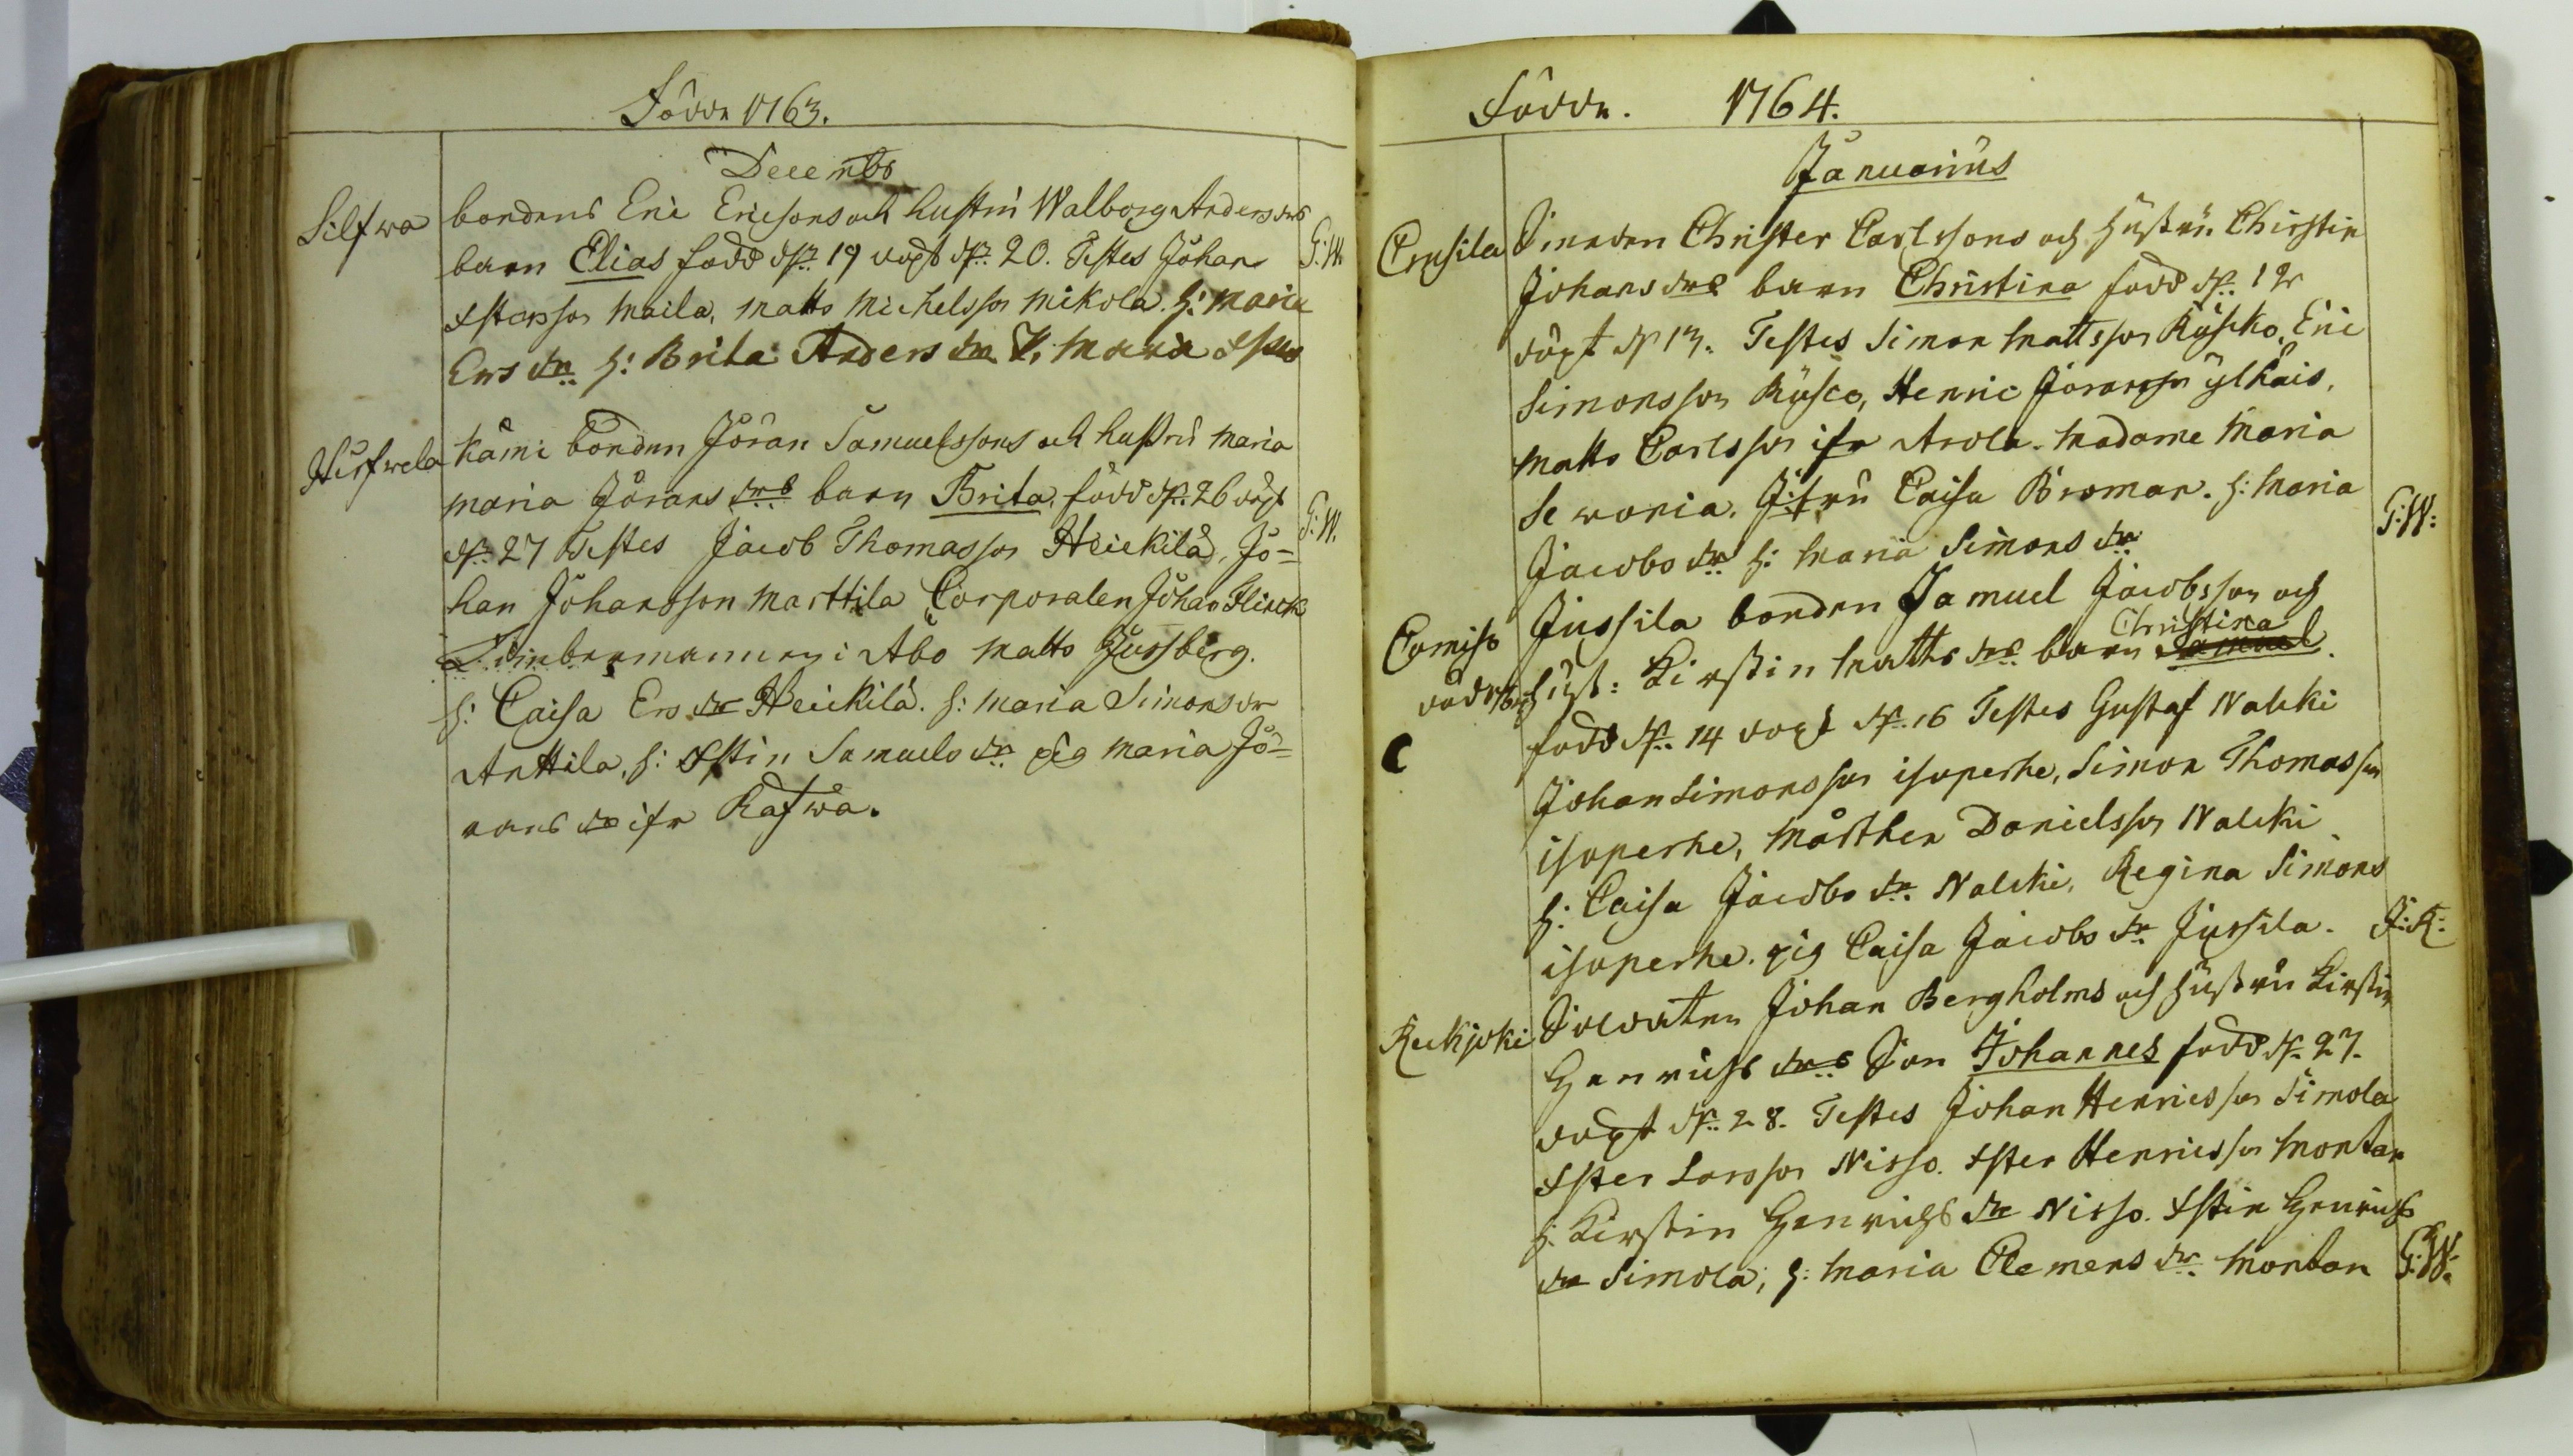 Födde 1763.
Decembr
Silfwa
bondens Eric Ericsons och hustru Walborg Andersdrs
barn Elias född d. 19 döpt d. 20. Testes Johan
G:W.
Esterssor Maila, Matts Michelsson Mikola. h: Maria
Ers dr. h: Brita Anders dr. P. Maria
Hirfwela
Kåmi bonden Jöran Samuelssons och hustru Maria
Maria Jörans drs barn Brita, född d. 26 döpt
d. 27 Testes Jacob Thomasson Heickilä, Jo=
G:W.
han Johansson Marttila Corporalen Johan Flinck
Timbermannen i Åbo Matts Jussberg.
h: Caisa Ers dr Heickilä. h: Maria Simonsdr
Anttila, h: Estin Samuels dr pig Maria Jö=
rans dr ifr Rafwa.
Födde. 1764.
Januarius
Crusila
Smeden Christer Carlssons och hustru Christin
Johans drs barn Christina född d. 12
döpt d 13. Testes Simon Mattsson Rusko, Eric
Simonsson Rusco, Henric Joransson ylhais,
Matts Carlsson ifr Arola. Madame Maria
Sewonia. Jifru Caisa Broman. h: Maria
G:W:
Jacobs dr h: Maria Simons dr
Comiss
Jussila bonden Samuel Jacobsson och
Christina
vådrsbÿ
hust: Kirstin Matts drs barn Samuel
född d. 14 döpt d. 16 Testes Gustaf Nalcki
C
Johan Simonsson isoperhe, Simon Thomasson
isoperhe, Mårthen Danielsson Nalcki
h: Caisa Jacobs dr. Nalcki, Regina Simons
isoperhe. pig Caisa Jacobs dr Jussila.
J:K:
Reckjoki
Soldaten Johan Bergholms och hustru Kirstin
Henrichs drs Son Johannes född d. 27.
döpt d. 28. Testes Johan Henricsson Simola
Ester Larsson Nisso. Ester Henricsson Montan
h. Kirstin Henrichs dr Nisso. Estin Henrichs
dr Simola; h: Maria Clemens dr. Montan
G:W: